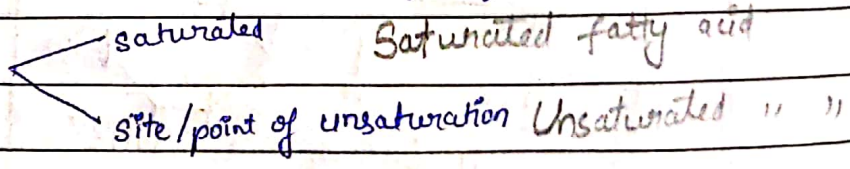 saturated Saturated fatty acid
site/point of unsaturation Unsaturated " "